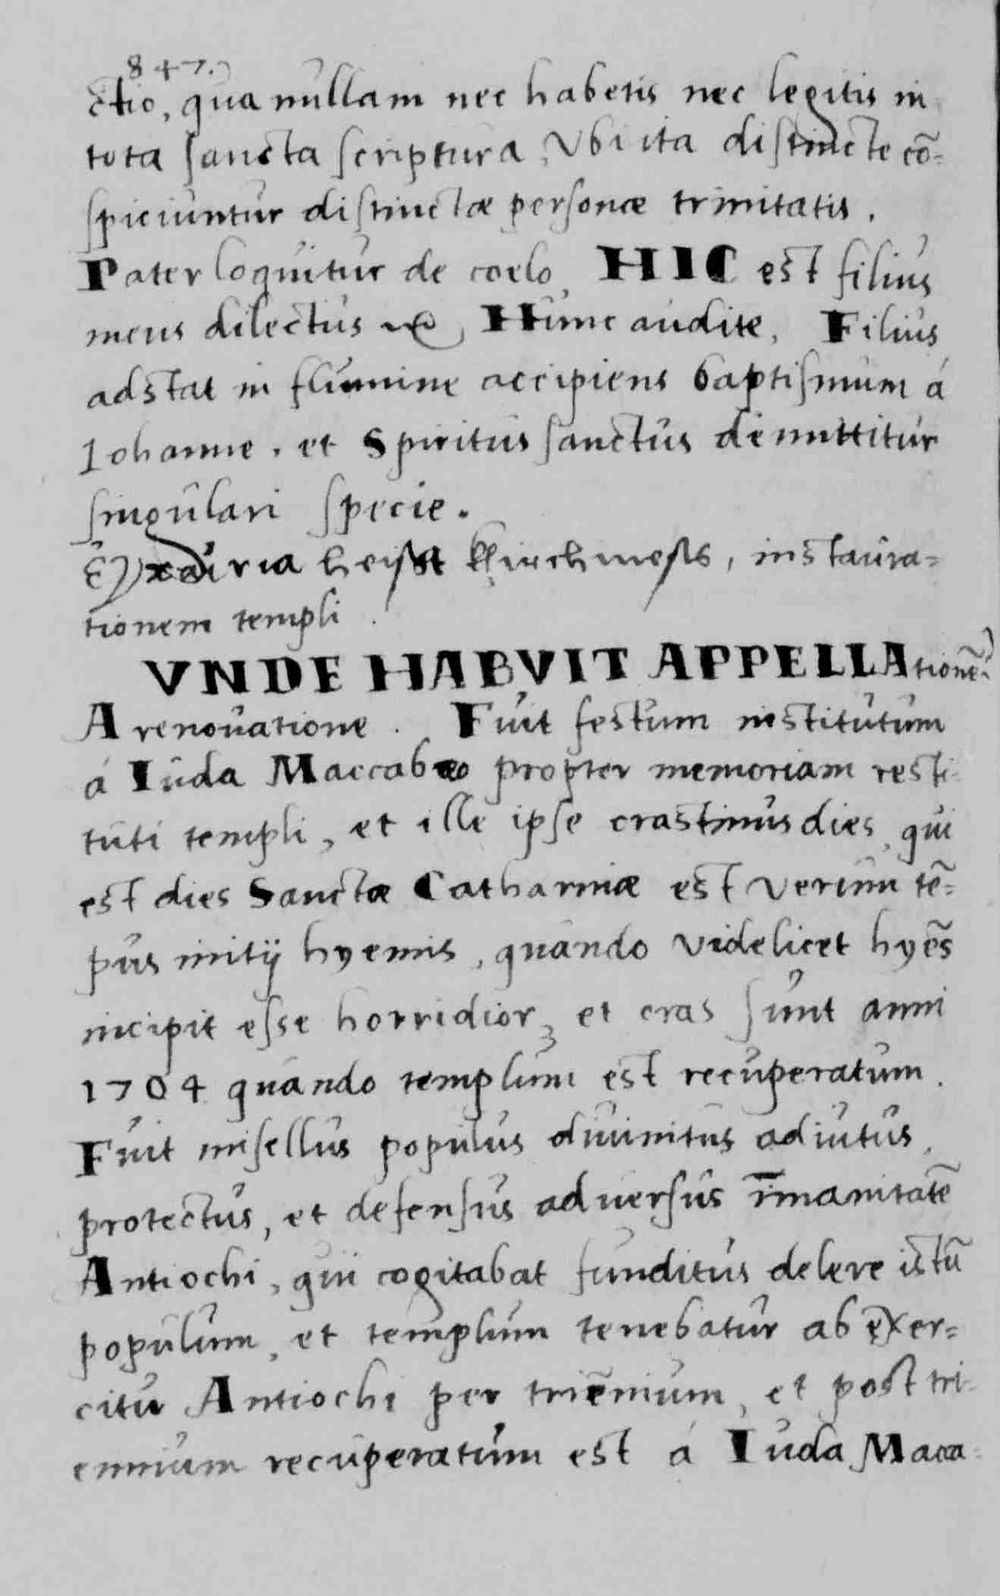 847.
ctio, qua nullam nec habetis nec legitis in
tota sancta scriptura, Vbi ita distincte cō-
spiciuntur distinctæ personæ trinitatis.
Pater loquitur de coelo, HIC est filius
meus dilectus Hunc audite, Filius
adstat in flumine accipiens baptismum á
Iohanne, et Spiritus sanctus demittitur
singulari specie.
heisst Kirchmess, instaura-
tionem templi.
VNDE HABVIT APPELLAtionē?
A renouatione. Fuit festum institutum
á Iuda Maccabæo propter memoriam resti-
tuti templi, et ille ipse crastinus dies, qui
est dies Sanctæ Catharinæ est verum tē-
pus initij hyemis, quando videlicet hyēs
incipit esse horridior, et cras sunt anni
1704 quando templum est recuperatum.
Fuit misellus populus diuinitus adiutus,
protectus, et defensus aduersus īmanitatē
Antiochi, qui cogitabat funditus delere istū
populum, et templum tenebatur ab exer-
citu Antiochi per triēnium, et post tri-
ennium recuperatum est á Iuda Macca-